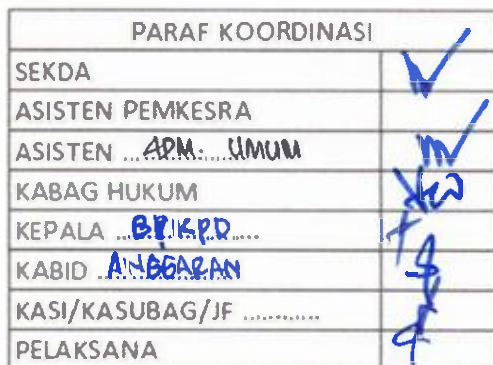 PARAF KOORDINASI
SEKDA
ASISTEN PEMKESRA
ASISTEN ... ADM. UMUM
KABAG HUKUM
KEPALA ... BPKPD .....
KABID ... ANGGARAN
KASI/KASUBAG/JF ............
PELAKSANA